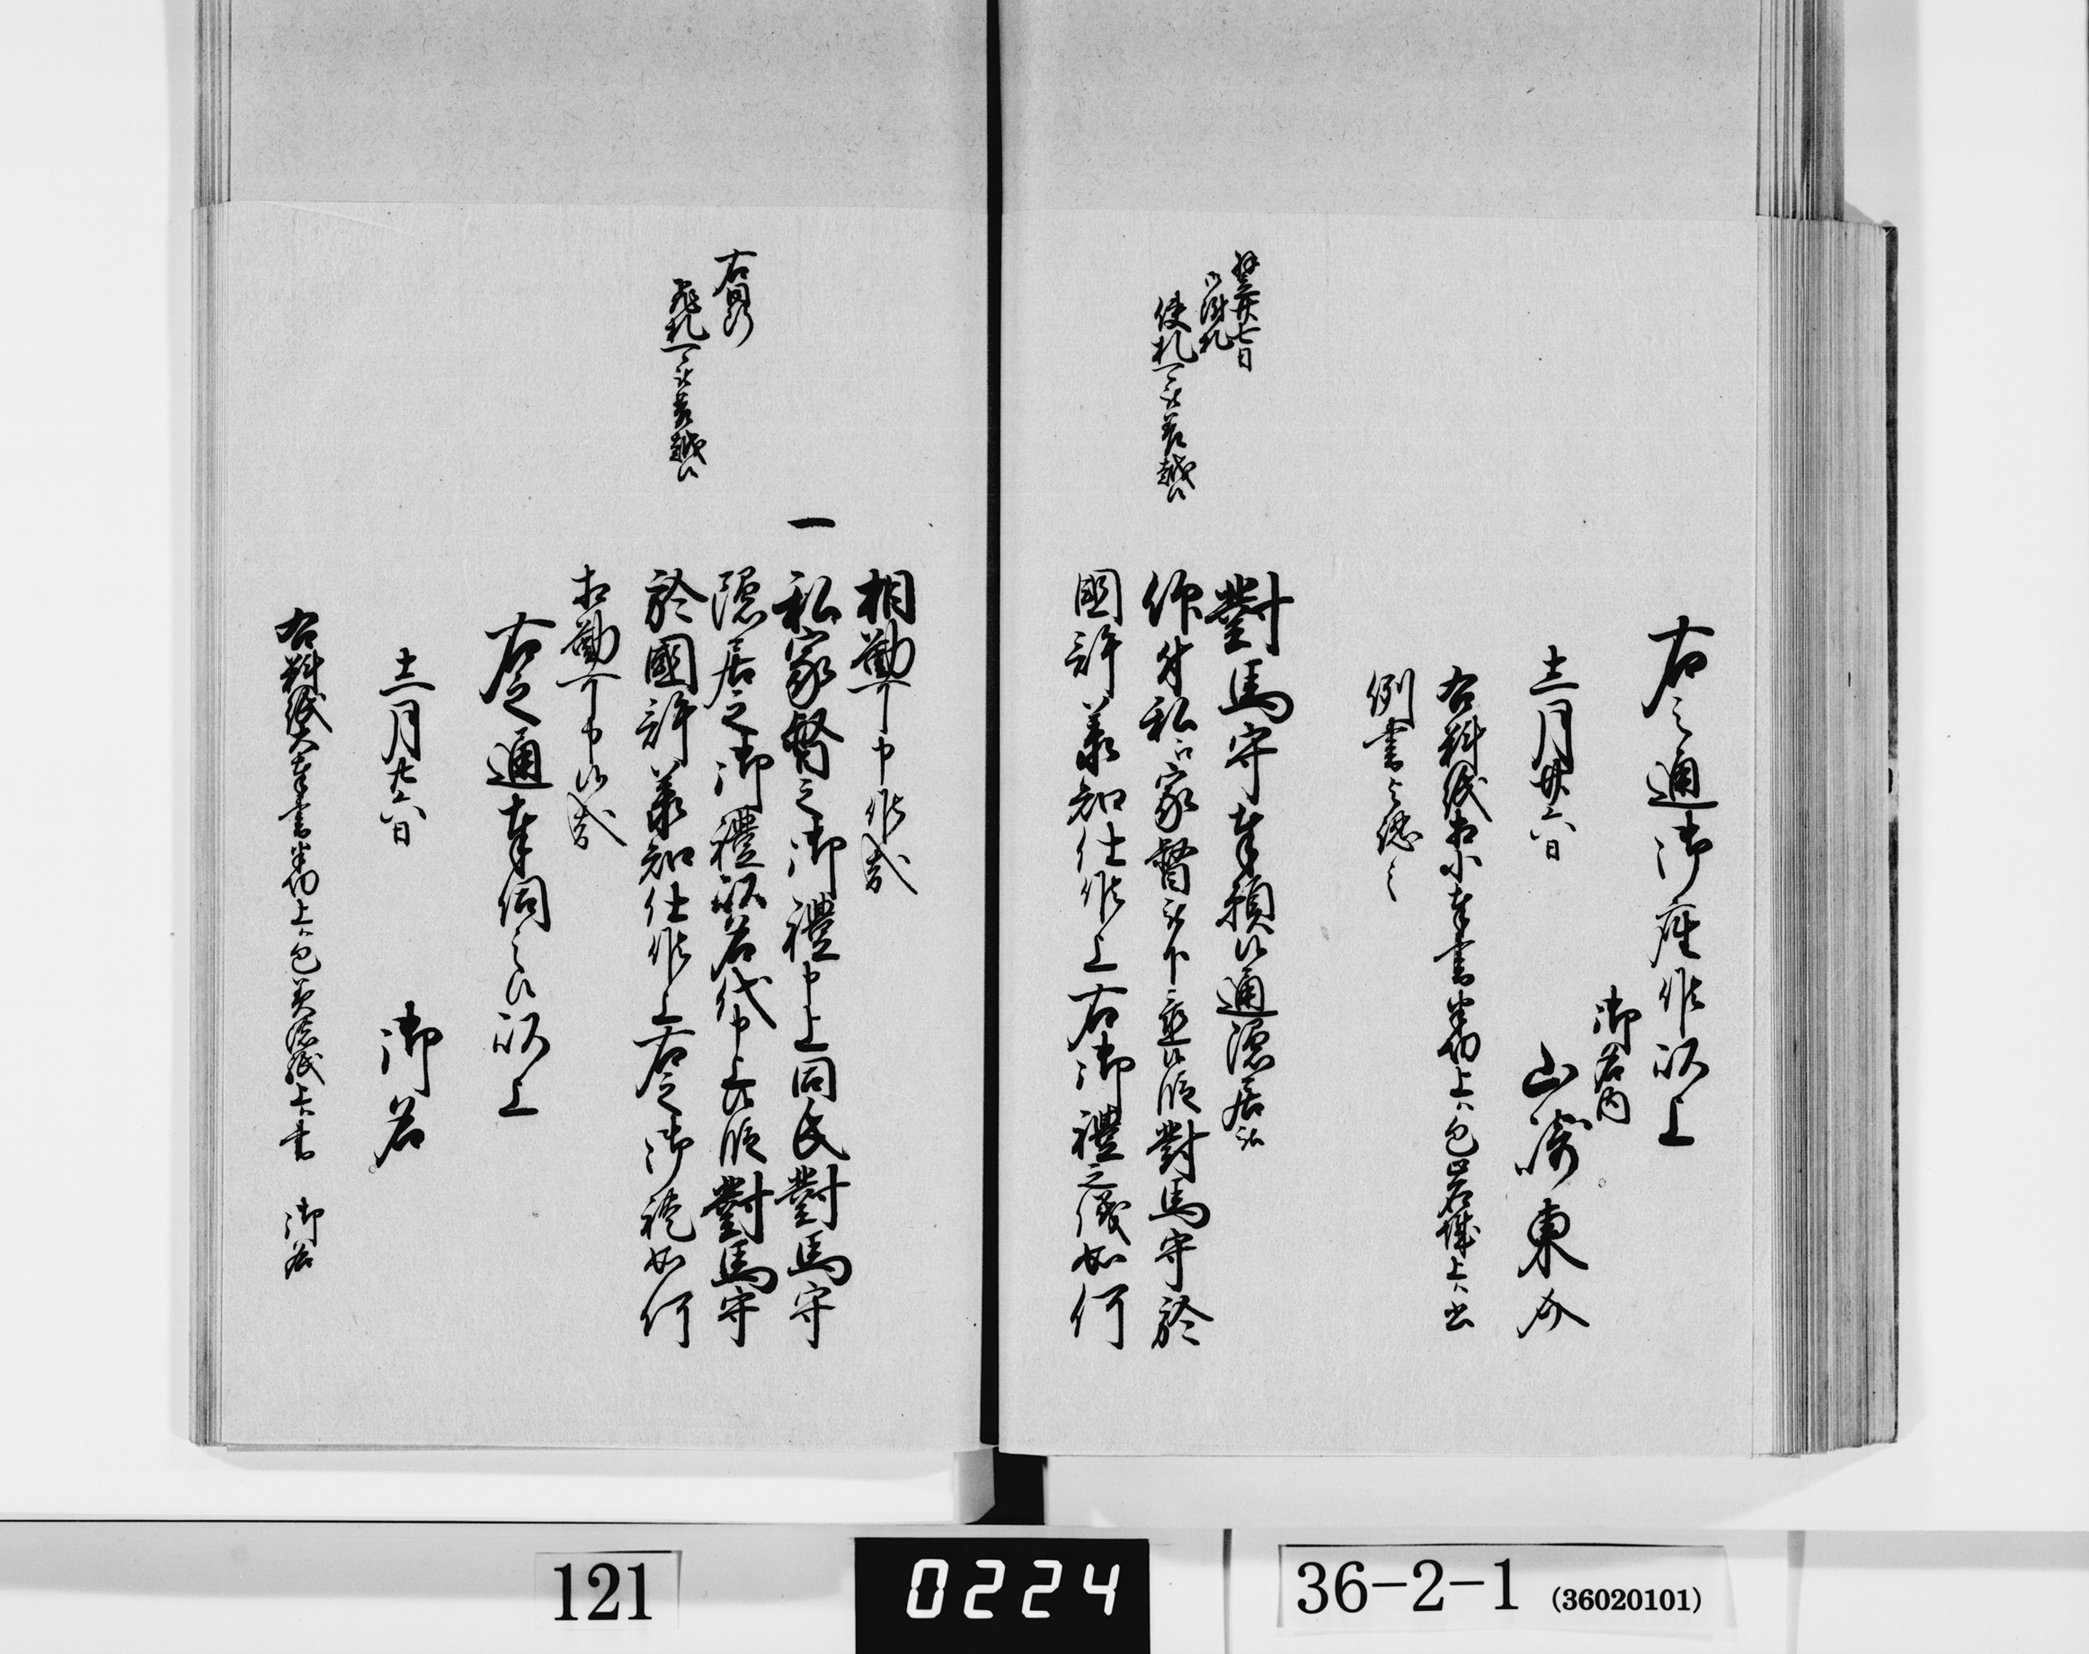 右之通御座候以上
御名内
十一月廿六日　山崎東介
右料紙相小奉書半切上ハ包岩城上ハ書
例書之認之
翌廿七日
御附札
使札可被差越候
對馬守奉願候通隠居被
仰付私江家督被下置候段對馬守於
國許承知仕候上右御禮之儀如何
相勤可申候哉
一私家督之御禮申上同氏對馬守
隠居之御禮以名代申上候段對馬守
於國許承知仕候上右之御禮如何
相勤可申候哉
右同断
飛札可被差越候
右之通奉伺之候以上
十一月廿六日　御名
右料紙大奉書半切上ハ包美濃紙上ハ書　御名
121
0224
36-2-1 (36020101)